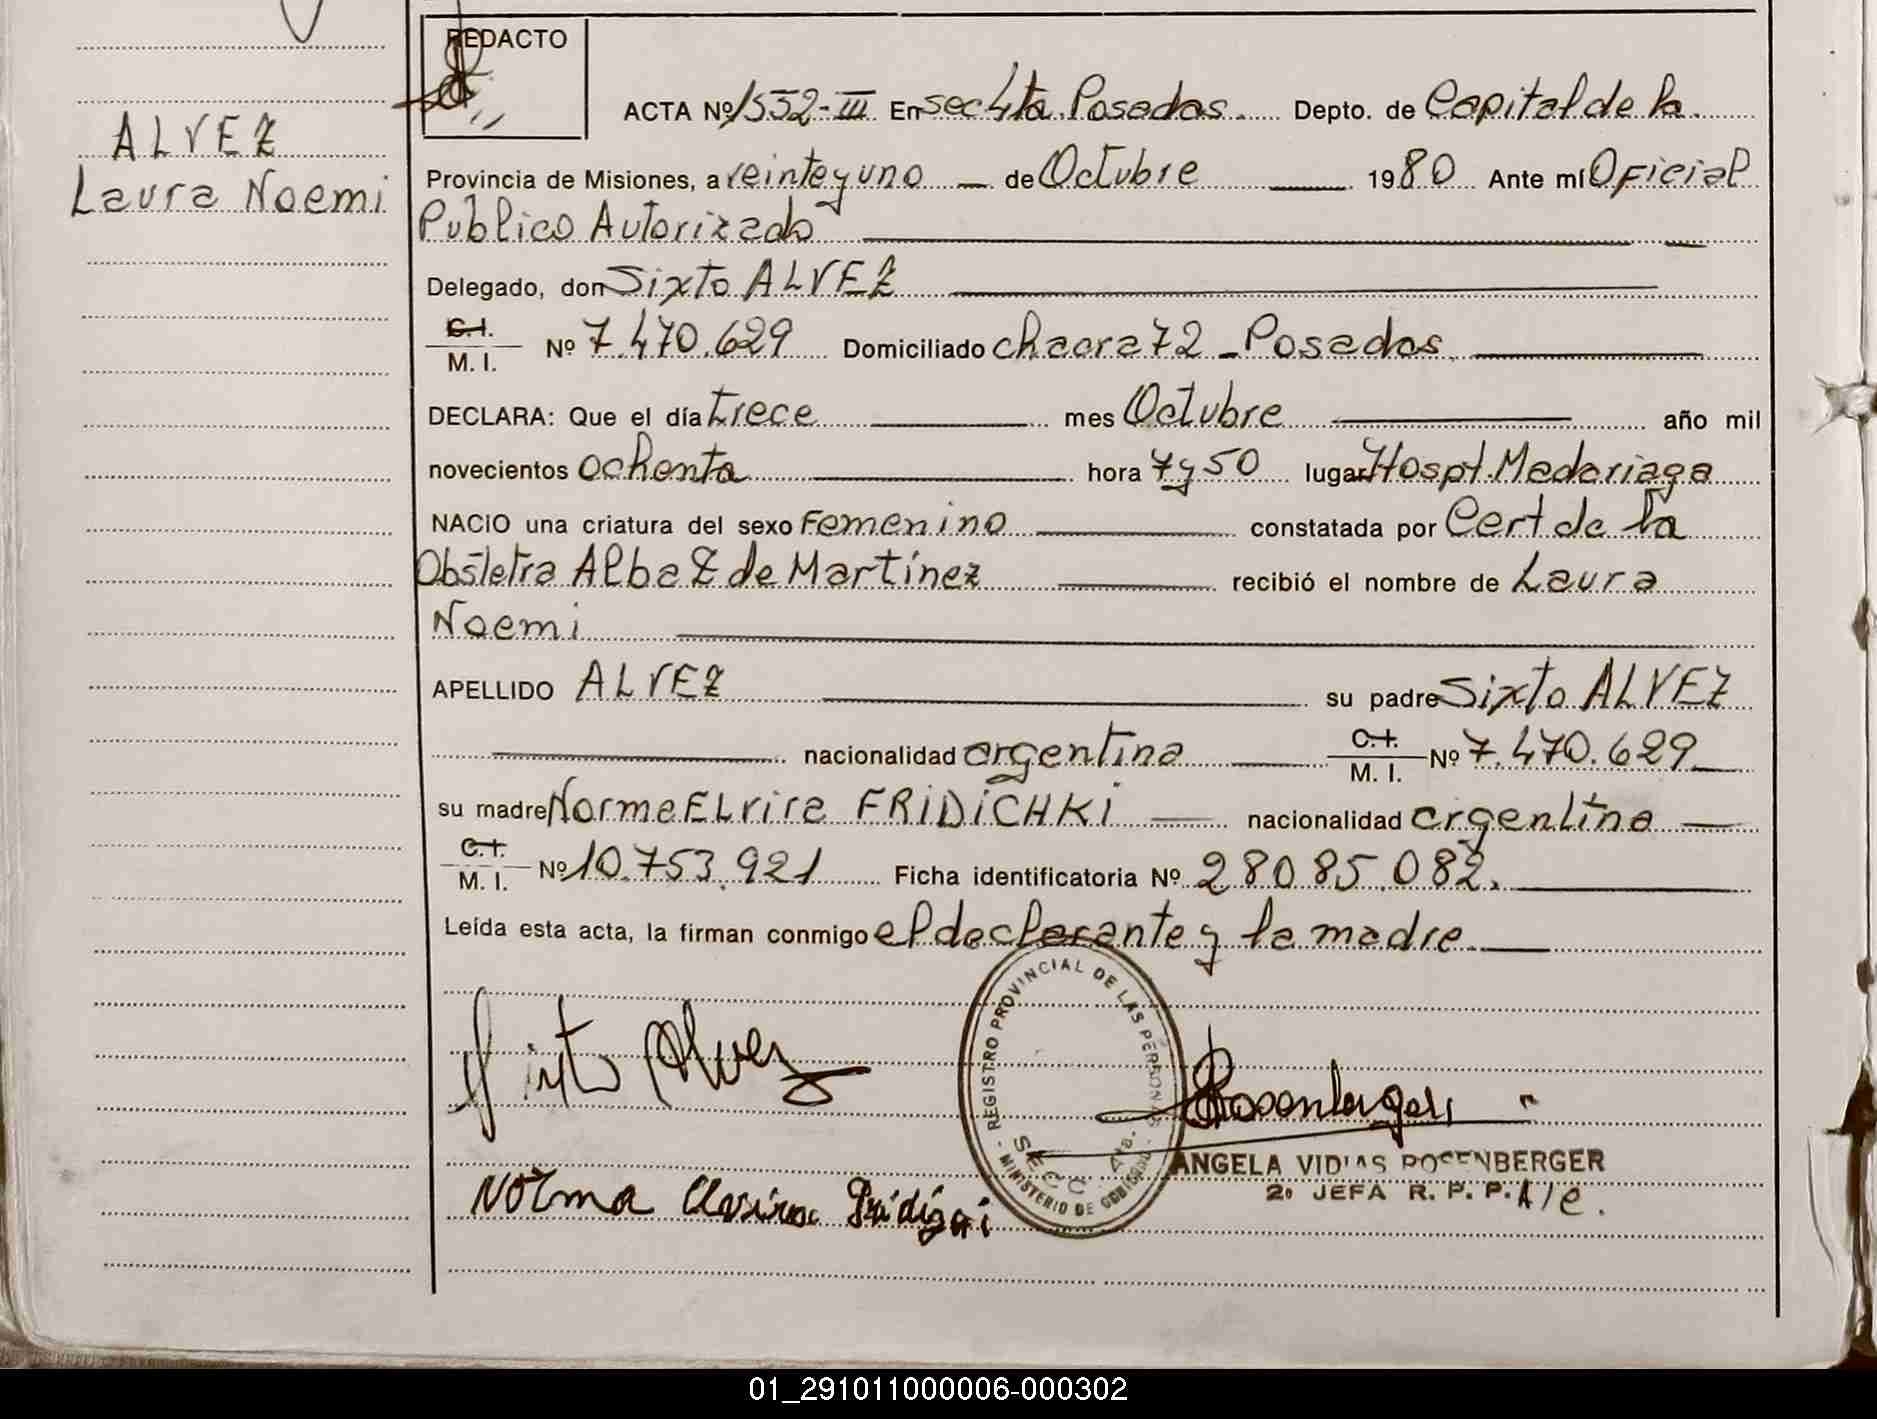 REDACTO
ACTA Nº 1532-III En sec 4ta Posadas. Depto. de Capital de la
ALVEZ
Laura Noemi
Provincia de Misiones, a veinte y uno de Octubre 1980 Ante mí Oficial
Publico Autorizado
Delegado, don Sixto ALVEZ
C. I.
M. I. Nº 7.470.629 Domiciliado chacra 72 - Posadas.
DECLARA: Que el día trece mes Octubre año mil
novecientos ochenta hora 7 y 50 lugar Hospt. Madariaga
NACIO una criatura del sexo Femenino constatada por Cert de la
Obstetra Alba Z de Martínez recibió el nombre de Laura
Noemi
APELLIDO ALVEZ su padre Sixto ALVEZ
nacionalidad argentina C. I. M. I. Nº 7.470.629
su madre Norma ELvira FRIDICHKI nacionalidad argentina
C. I.
M. I. Nº 10.753.921 Ficha identificatoria Nº 28085.082.
Leída esta acta, la firman conmigo el declarante y la madre
REGISTRO PROVINCIAL DE LAS PERSONAS
SECC. 4ta.
MINISTERIO DE GOBIERNO
Sixto Alvez
Rosenberger
ANGELA VIDIAS ROSENBERGER
2º JEFA R. P. P. A/C.
Norma
01_291011000006-000302